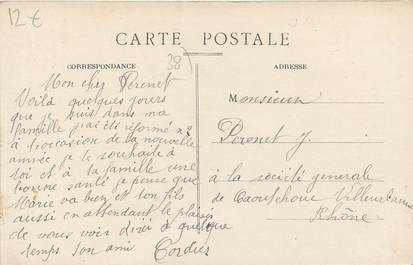 12€
38)
CARTE POSTALE
CORRESPONDANCE
ADRESSE
Mon cher Perenet
Voilà quelques jours
que je suis dans ma
famille j'ai été réformé n°2
à l'occasion de la nouvelle
année je te souhaite à
toi et à ta famille une
bonne santé je pense que
Marie va bien et ton fils
aussi en attendant le plaisir
de vous voir d'ici à quelque
temps ton ami Cordier
Monsieur
Perenet J.
à la société generale
de Caoutchouc Villeurbanne
Rhône